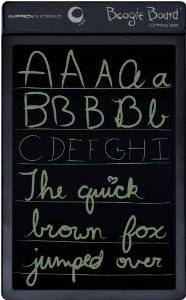 IMPROV ELECTRONICS Boogie Board
AAAaa
BBBBb
CDEFGHI
The quick
brown fox
jumped over